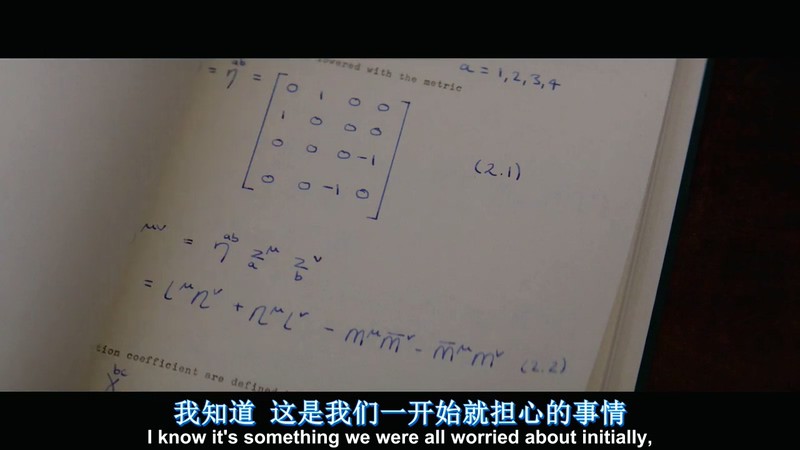 lowered with the metric
a = 1, 2, 3, 4
= η^{ab} =
0 1 0 0
1 0 0 0
0 0 0 -1
0 0 -1 0
(2.1)
μν = η^{ab} Z_a^μ Z_b^ν
= l^μ n^ν + n^μ l^ν - m^μ m̄^ν - m̄^μ m^ν (2.2)
tion coefficient are defined
bc
我知道 这是我们一开始就担心的事情
I know it's something we were all worried about initially,